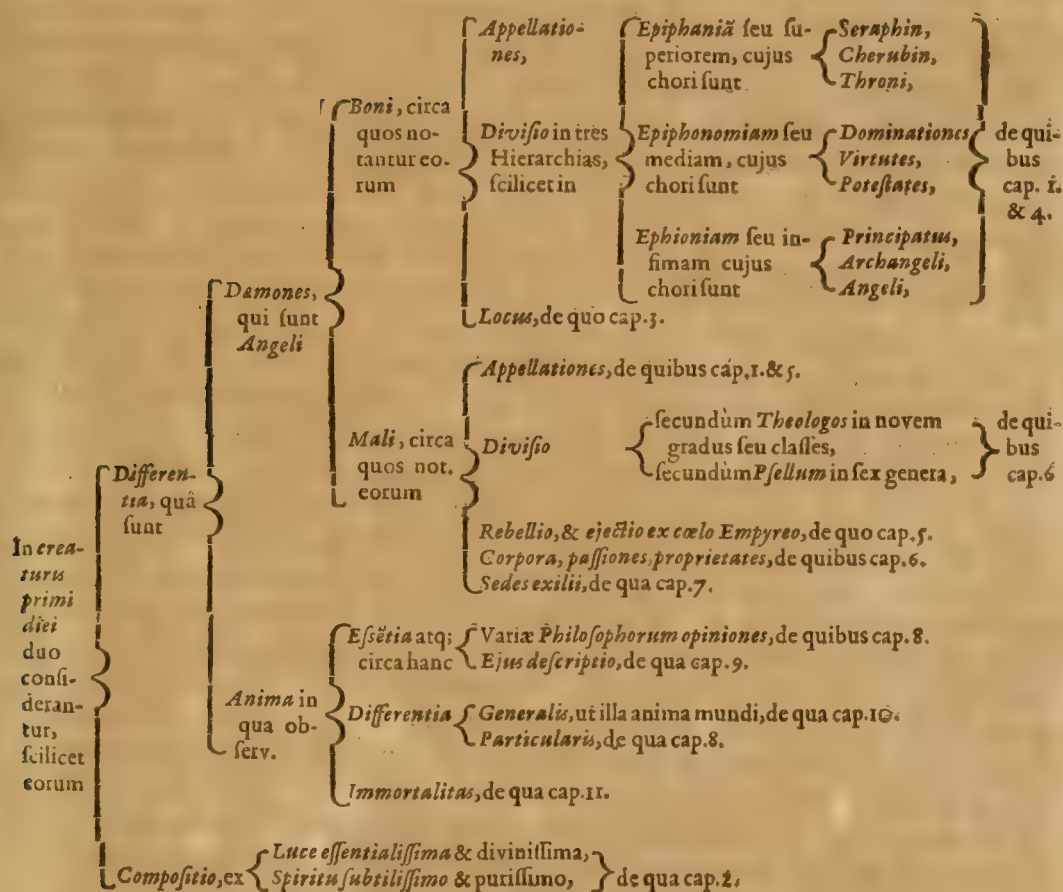 In crea-
turis
primi
diei
duo
conſi-
deran-
tur,
ſcilicet
eorum
Differen-
tia, quâ
ſunt
Dæmones,
qui ſunt
Angeli
Boni, circa
quos no-
tantur eo-
rum
Appellatio-
nes,
Diviſio in tres
Hierarchias,
ſcilicet in
Epiphaniã ſeu ſu-
periorem, cujus
chori ſunt
Seraphin,
Cherubin,
Throni,
Epiphonomiam ſeu
mediam, cujus
chori ſunt
Dominationes
Virtutes,
Poteſtates,
Ephioniam ſeu in-
fimam cujus
chori ſunt
Principatus,
Archangeli,
Angeli,
de qui-
bus
cap. 1.
& 4.
Locus, de quo cap. 3.
Mali, circa
quos not.
eorum
Appellationes, de quibus cap. 1. & 5.
Diviſio
ſecundùm Theologos in novem
gradus ſeu claſſes,
ſecundùm Pſellum in ſex genera,
de qui-
bus
cap. 6
Rebellio, & ejectio ex cœlo Empyreo, de quo cap. 5.
Corpora, paſſiones, proprietates, de quibus cap. 6.
Sedes exilii, de qua cap. 7.
Anima in
qua ob-
ſerv.
Eſsẽtia atq;
circa hanc
Variæ Philoſophorum opiniones, de quibus cap. 8.
Ejus deſcriptio, de qua cap. 9.
Differentia
Generalis, ut illa anima mundi, de qua cap. 10.
Particularis, de qua cap. 8.
Immortalitas, de qua cap. 11.
Compoſitio, ex
Luce eſſentialiſſima & diviniſſima,
Spiritu ſubtiliſſimo & puriſſimo,
de qua cap. 2.